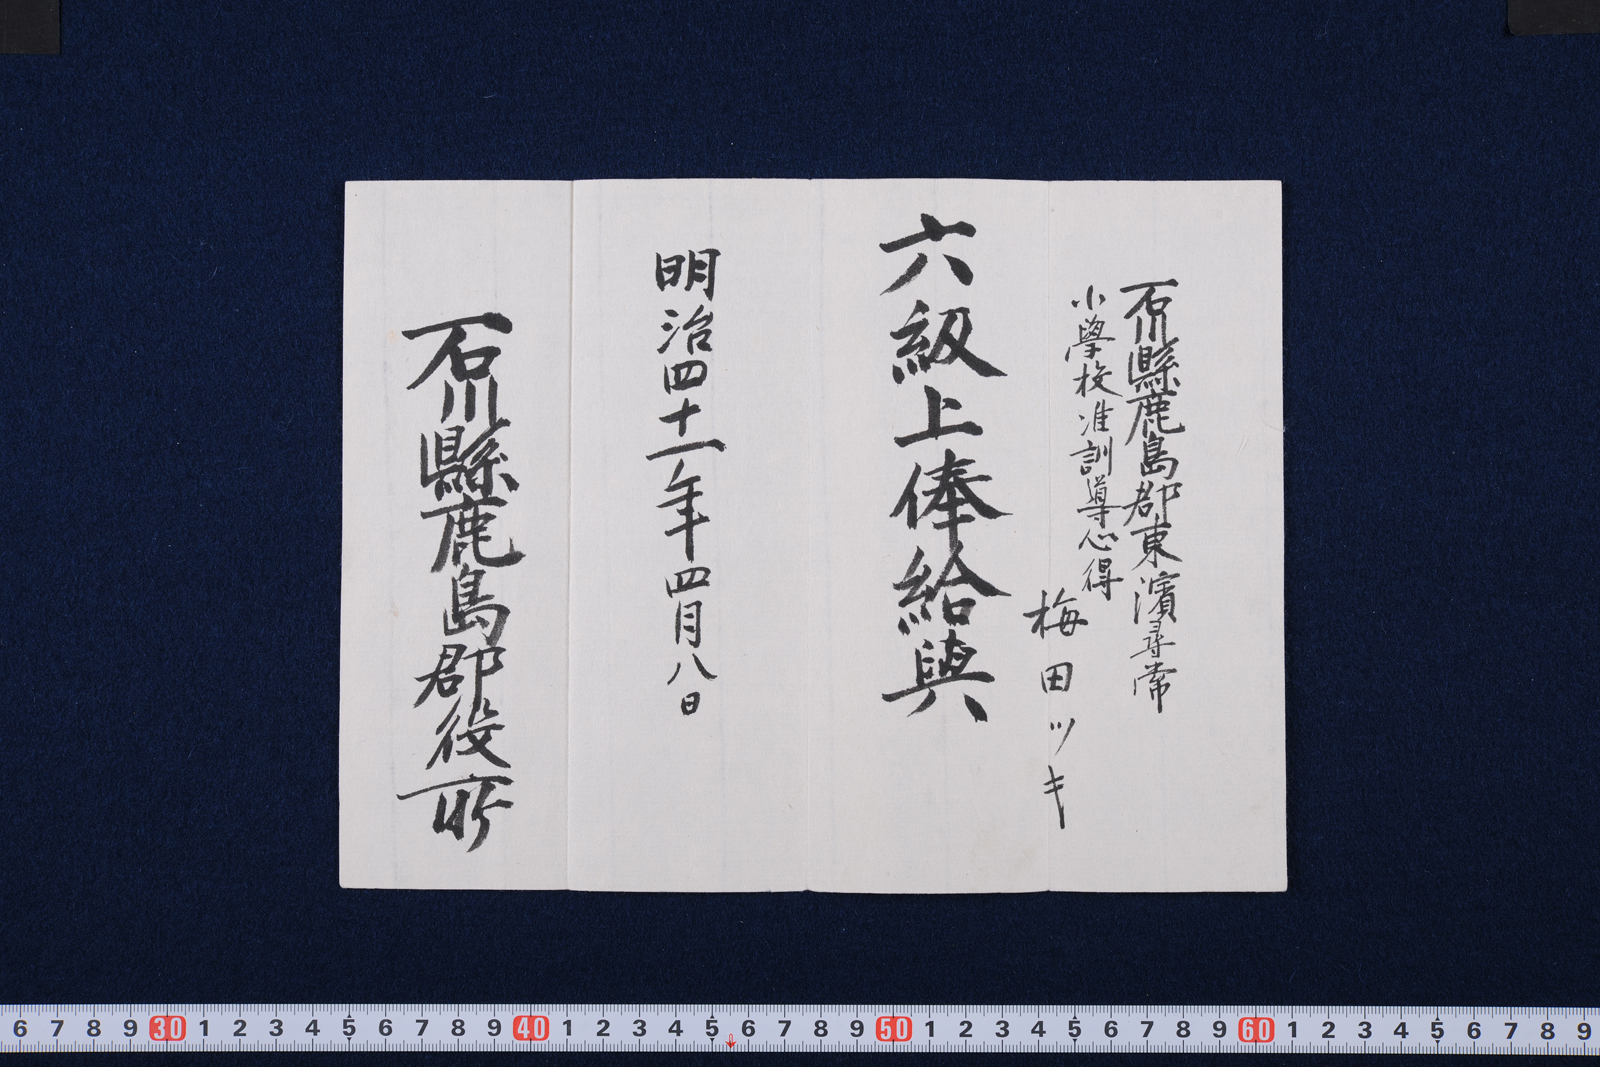 石川縣鹿島郡東濱尋常
小學校准訓導心得
梅田ツキ
六級上俸給與
明治四十一年四月八日
石川縣鹿島郡役所
6 7 8 9 30 1 2 3 4 5 6 7 8 9 40 1 2 3 4 5 6 7 8 9 50 1 2 3 4 5 6 7 8 9 60 1 2 3 4 5 6 7 8 9